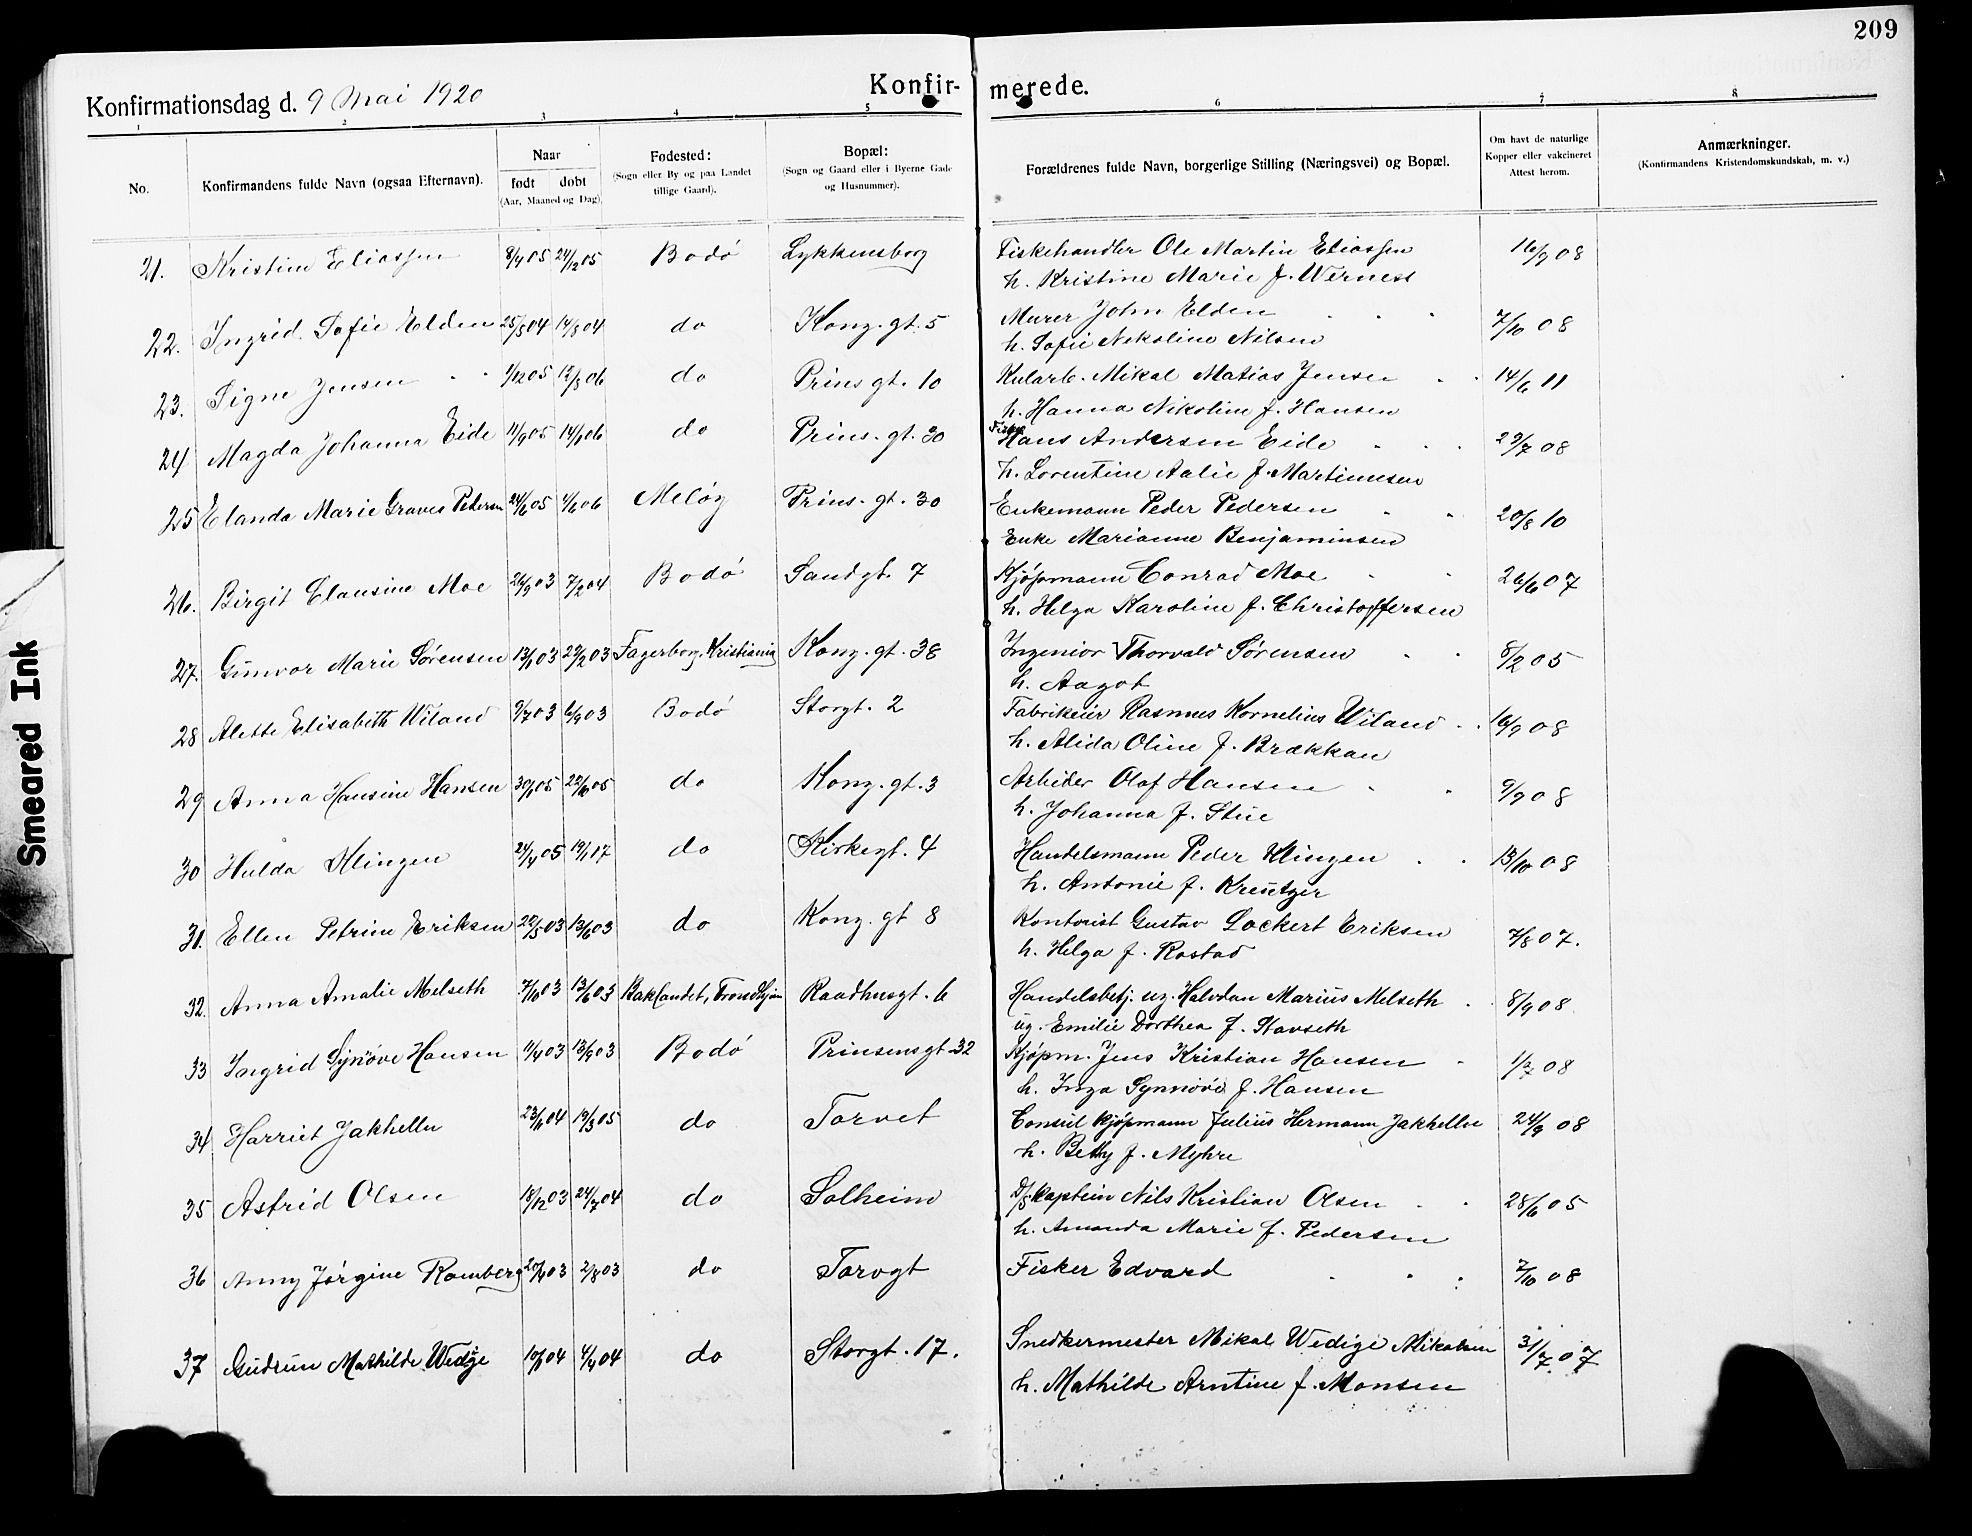 209
Konfirmationsdag d. 9 Mai 1920 Konfir- merede.
1 2 3 4 5 6 7 8
No. Konfirmandens fulde Navn (ogsaa Efternavn). Naar født døbt (Aar, Maaned og Dag). Fødested: (Sogn eller By og paa Landet tillige Gaard). Bopæl: (Sogn og Gaard eller i Byerne Gade og Husnummer). Forældrenes fulde Navn, borgerlige Stilling (Næringsvei) og Bopæl. Om havt de naturlige Kopper eller vakcineret Attest herom. Anmærkninger. (Konfirmandens Kristendomskundskab, m. v.)
21. Kristine Eliassen 8/4 05 24/12 05 Bodø Lykkensborg Fiskehandler Ole Martin Eliassen 16/9 08
h. Kristine Marie f. Werness
22. Ingrid Sofie Elden 25/5 04 14/8 04 do Kong. gt. 5 Murer John Elden 7/10 08
h. Sofie Nikoline Nilsen
23. Signe Jensen 1/12 05 12/8 06 do Prins gt. 10 Kularb. Mikal Matias Jensen 14/6 11
h. Hanna Nikoline f. Hansen
24 Magda Johanna Eide 11/9 05 14/1 06 do Prins. gt. 30 Fisker Hans Andersen Eide 29/7 08
h. Lorentine Aalie f. Martinusen
25 Elanda Marie Graves Pedersen 24/6 05 4/6 06 Meløy Prins. gt. 30 Enkemann Peder Pedersen 20/8 10
Enke Marianne Benjaminsen
26. Birgit Clausine Moe 26/9 03 7/2 04 Bodø Sandgt. 7 Kjøpmann Conrad Moe 26/6 07
h. Helga Karoline f. Christoffersen
27. Gunvor Marie Sørensen 13/1 03 22/2 03 Fagerborg, Kristiania Kong. gt. 38 Ingeniør Thorvald Sørensen 8/2 05
h. Aagot
28 Alette Elisabeth Wiland 9/7 03 6/9 03 Bodø Storgt. 2 Fabrikeier Rasmus Kornelius Wiland 16/9 08
h. Alida Oline f. Brækkan
29 Anna Hansine Hansen 30/1 05 22/10 05 do Kong. gt. 3 Arbeider Olaf Hansen 9/9 08
h. Johanna f. Stue
30 Hulda Klingen 24/4 05 19/1 17 do Kirkegt. 4 Handelsmann Peder Klingen 13/10 08
h. Antonie f. Kreutzer
31. Ellen Petrine Eriksen 22/5 03 13/6 03 do Kong. gt 8 Kontorist Gustav Lockert Eriksen 7/8 07.
h. Helga f. Rostad
32. Anna Amalie Melseth 7/1 03 13/6 03 Baklandet, Trondhjem Raadhusgt. 6 Handelsbetj. ug. Halvdan Marius Melseth 8/9 08
ug. Emilie Dorthea f. Stavseth
33 Ingrid Synøve Hansen 11/4 03 13/9 03 Bodø Prinsensgt 32 Kjøpm. Jens Kristian Hansen 1/7 08
h. Inga Synnøve f. Hansen
34 Harriet Jakhelln 23/1 04 19/3 05 do Torvet Consul kjøpmann Julius Hermann Jakhelln 24/9 08
h. Betty f. Myhre
35 Astrid Olsen 18/12 03 24/7 04 do Solheim D/S Kaptein Nils Kristian Olsen 28/6 05
h. Amanda Marie f. Pedersen
36 Anny Jørgine Romberg 20/4 03 2/8 03 do Torvgt Fisker Edvard 7/10 08
37 Gudrun Mathilde Wedige 10/1 04 4/4 04 do Storgt. 17. Snedkermester Mikal Wedige Mikalsen 31/7 07
h. Mathilde Arntine f. Monsen
Smeared Ink